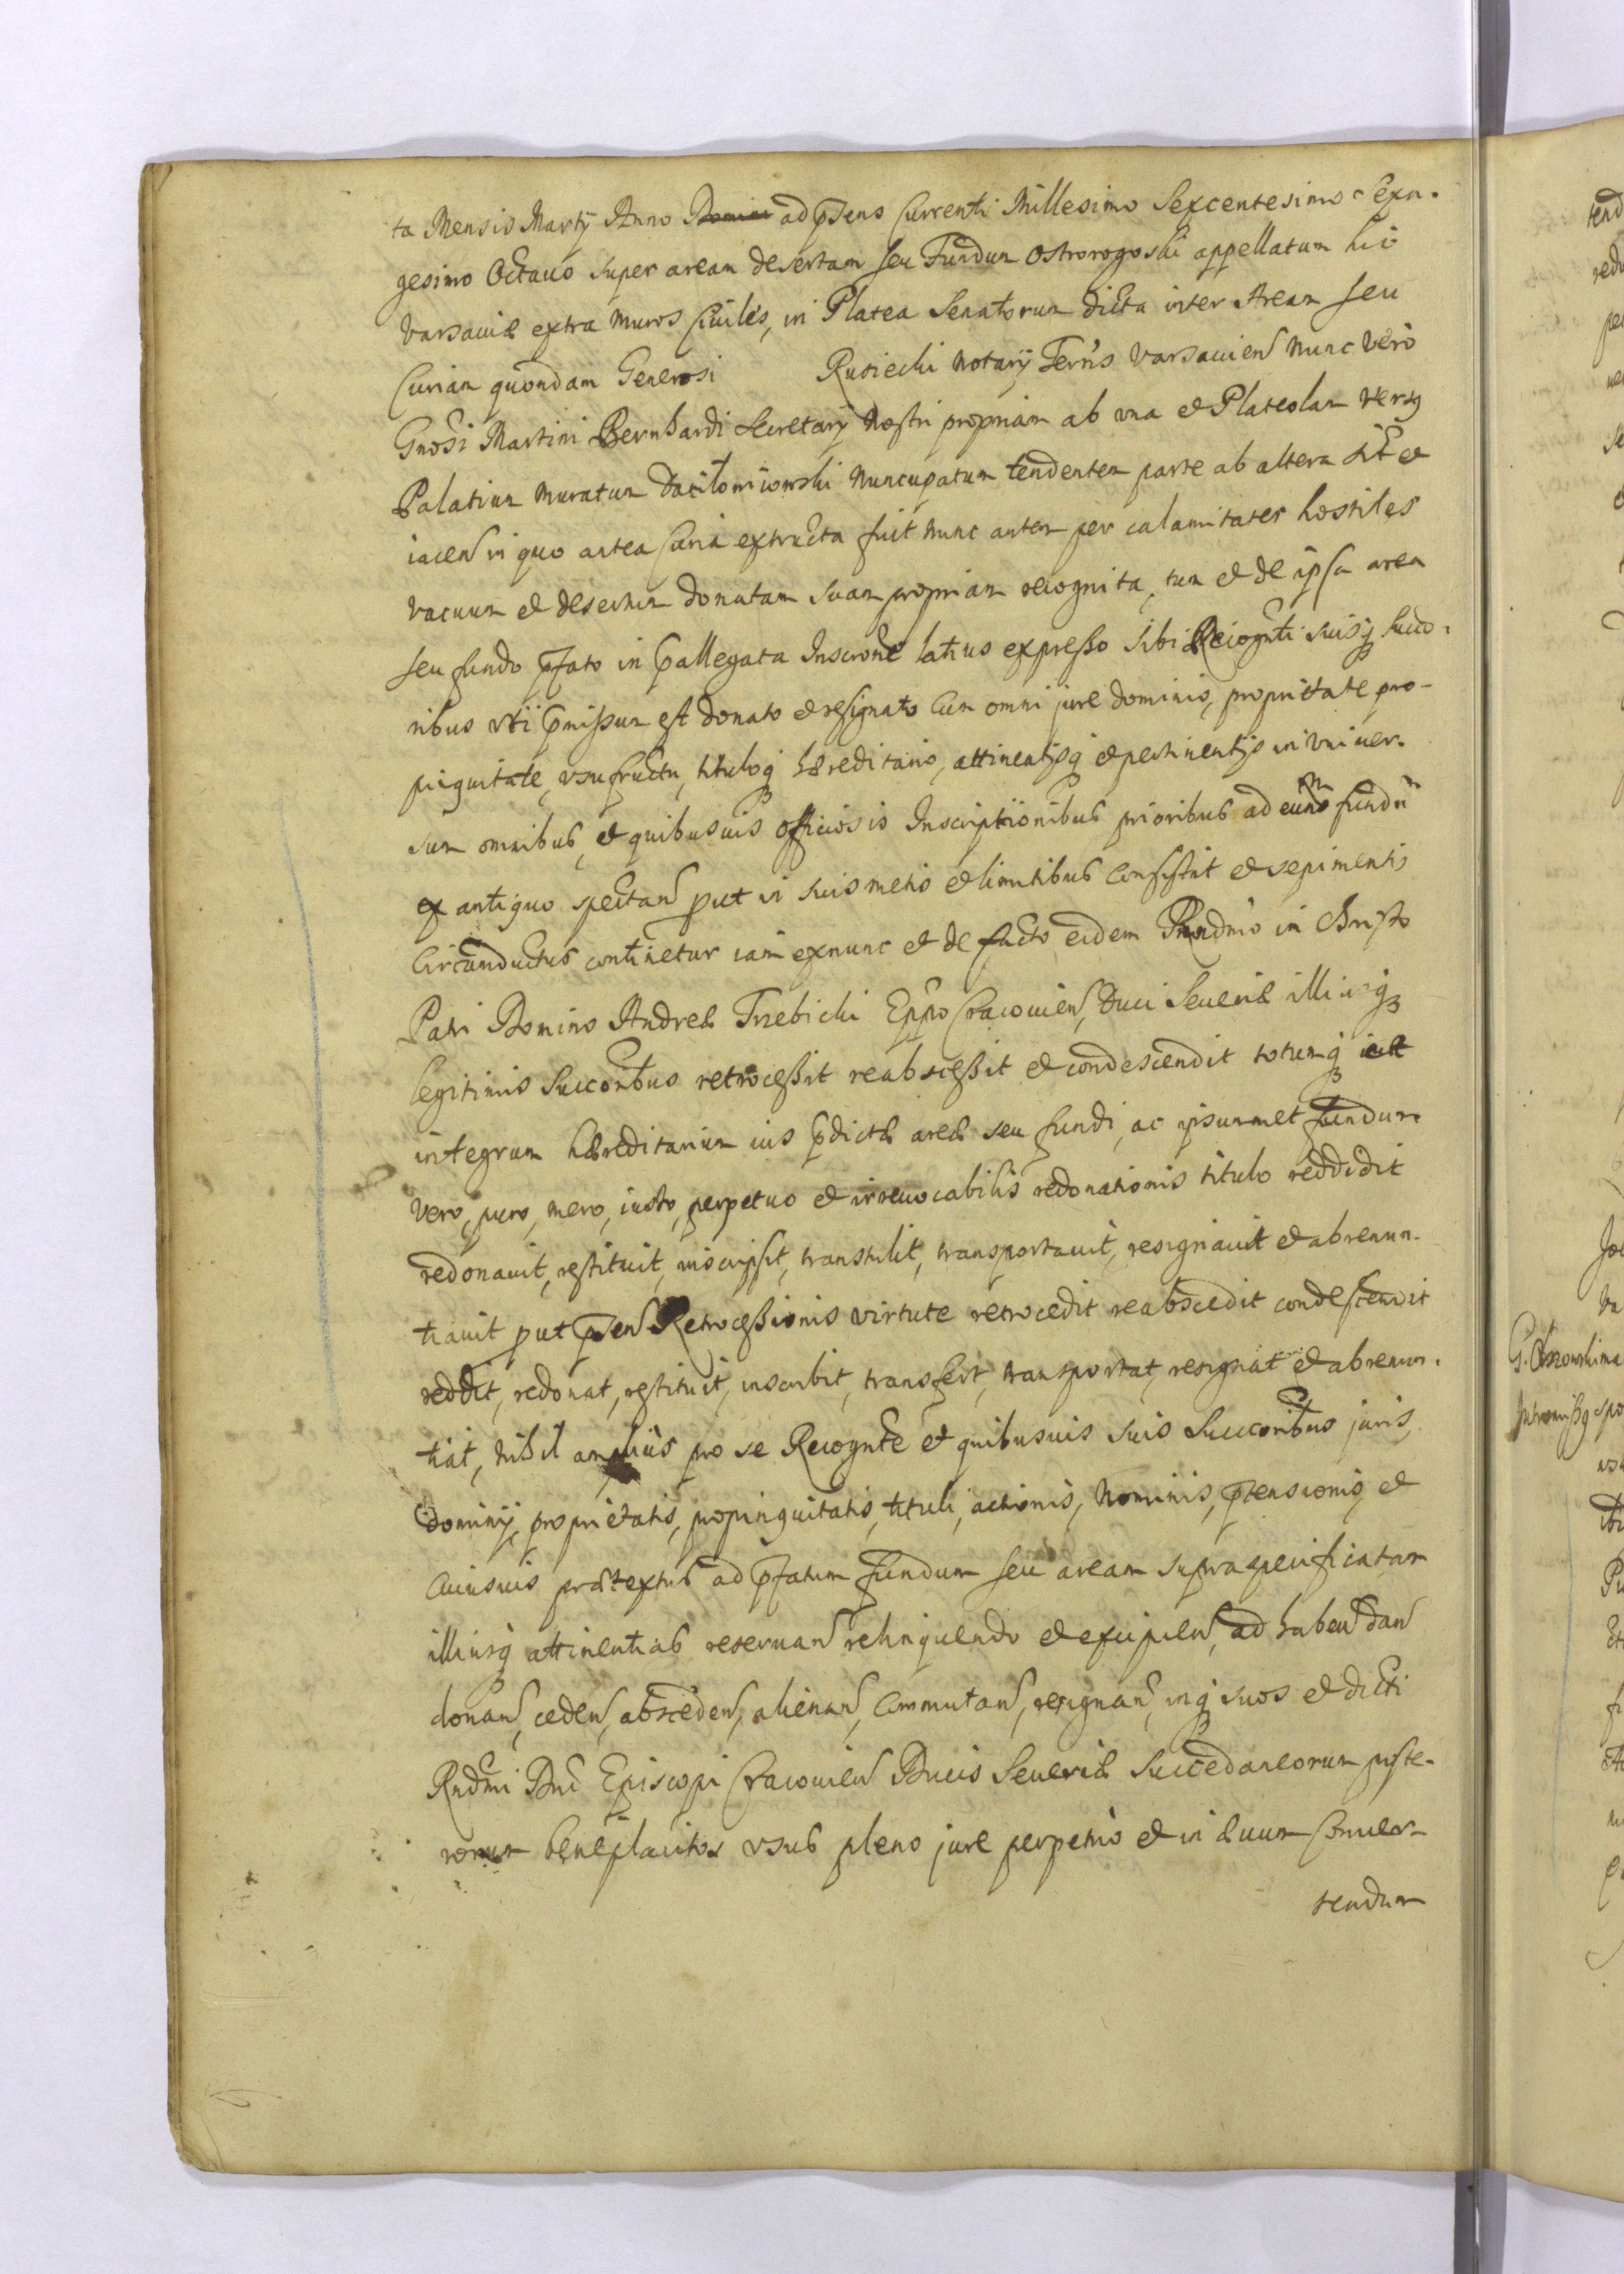 ta Mensis Martÿ Anno Domini ad pñsens Currenti Millesimo Sexcentesimo Sexa-
gesimo Octauo super aream desertam seu Fundum Ostrorogoski appellatum hic
Varsauiæ extra muros Ciuiles, in Platea Senatorum dicta inter Aream seu
Curiam quondam Generosi Rusiecki Notarÿ Terr̃is Varsauien̄ nunc vero
Gnõsi Martini Bernhardi Secretarÿ Nostri propriam ab vna et Plateolam versq
Palatium muratum Daniłowiczowski nuncupatum tendentem parte ab altera sit̃ et
iacen̄ in quo antea Curia extructa fuit nunc autem per calamitates hostiles
vacuum et desertum donatam suam propriam recognita, tum et de ipsa area
seu fundo p̃fato in p̃allegata Inscr̃one latius expresso sibi Recognt̃i suisq succo-
ribus vti p̃missum est donato et resignato Cum omni jure dominio, proprietate pro-
pinguitate, vsufructu, tituloq hæreditario, attinentÿsq et pertinentÿs in vniuer-
sum omnibus, et quibusuis officiosis Inscriptionibus prioribus ad eum fundũ
ex antiquo spectan̄ put in suis metis et limitibus consistit et sepimentis
Circumductus continetur iam exnunc et de facto eidem Rndmo in Christo
Patri Domino Andreæ Trzebicki Epp̃o Cracouien̄, Duci Seueriæ illiusq
legitimis Succor̃ibus retrocessit reabscessit et condescendit totumq
integrum hæreditarium ius p̃dictæ areæ seu fundi, ac ipsummet fundum
vero, puro, mero, iusto, perpetuo et irreuocabilis redonationis titulo reddidit
redonauit, restituit, inscripsit, transtulit, transportauit, resignauit et abrenun-
tiauit put p̃sen̄ Retrocessionis virtute retrocedit reabscedit condescendit
reddit, redonat, restituit, inscribit, transfert, transportat, resignat et abrenun-
tiat, nihil amplius pro se Recognt̃e et quibusuis suis Succorĩbus juris,
dominÿ, proprietatis, propinguitatis, tituli, actionis, Nominis, p̃tensionis, et
Cuiusuis prætextus ad p̃fatum fundum seu aream supraspecificatam
illiusq attinentias reseruan̄ relinquendo et excipien̄, ad haben̄ dan̄
donan̄, ceden̄, absceden̄, alienan̄, Commutan̄, resignan̄, inq suos et dicti
Rndmi Dnĩ Episcopi Cracouien̄ Ducis Seueriæ Succedaneorum poste-
rorum beneplacitos vsus pleno jure perpetuo et in æuum Conuer-
tendum